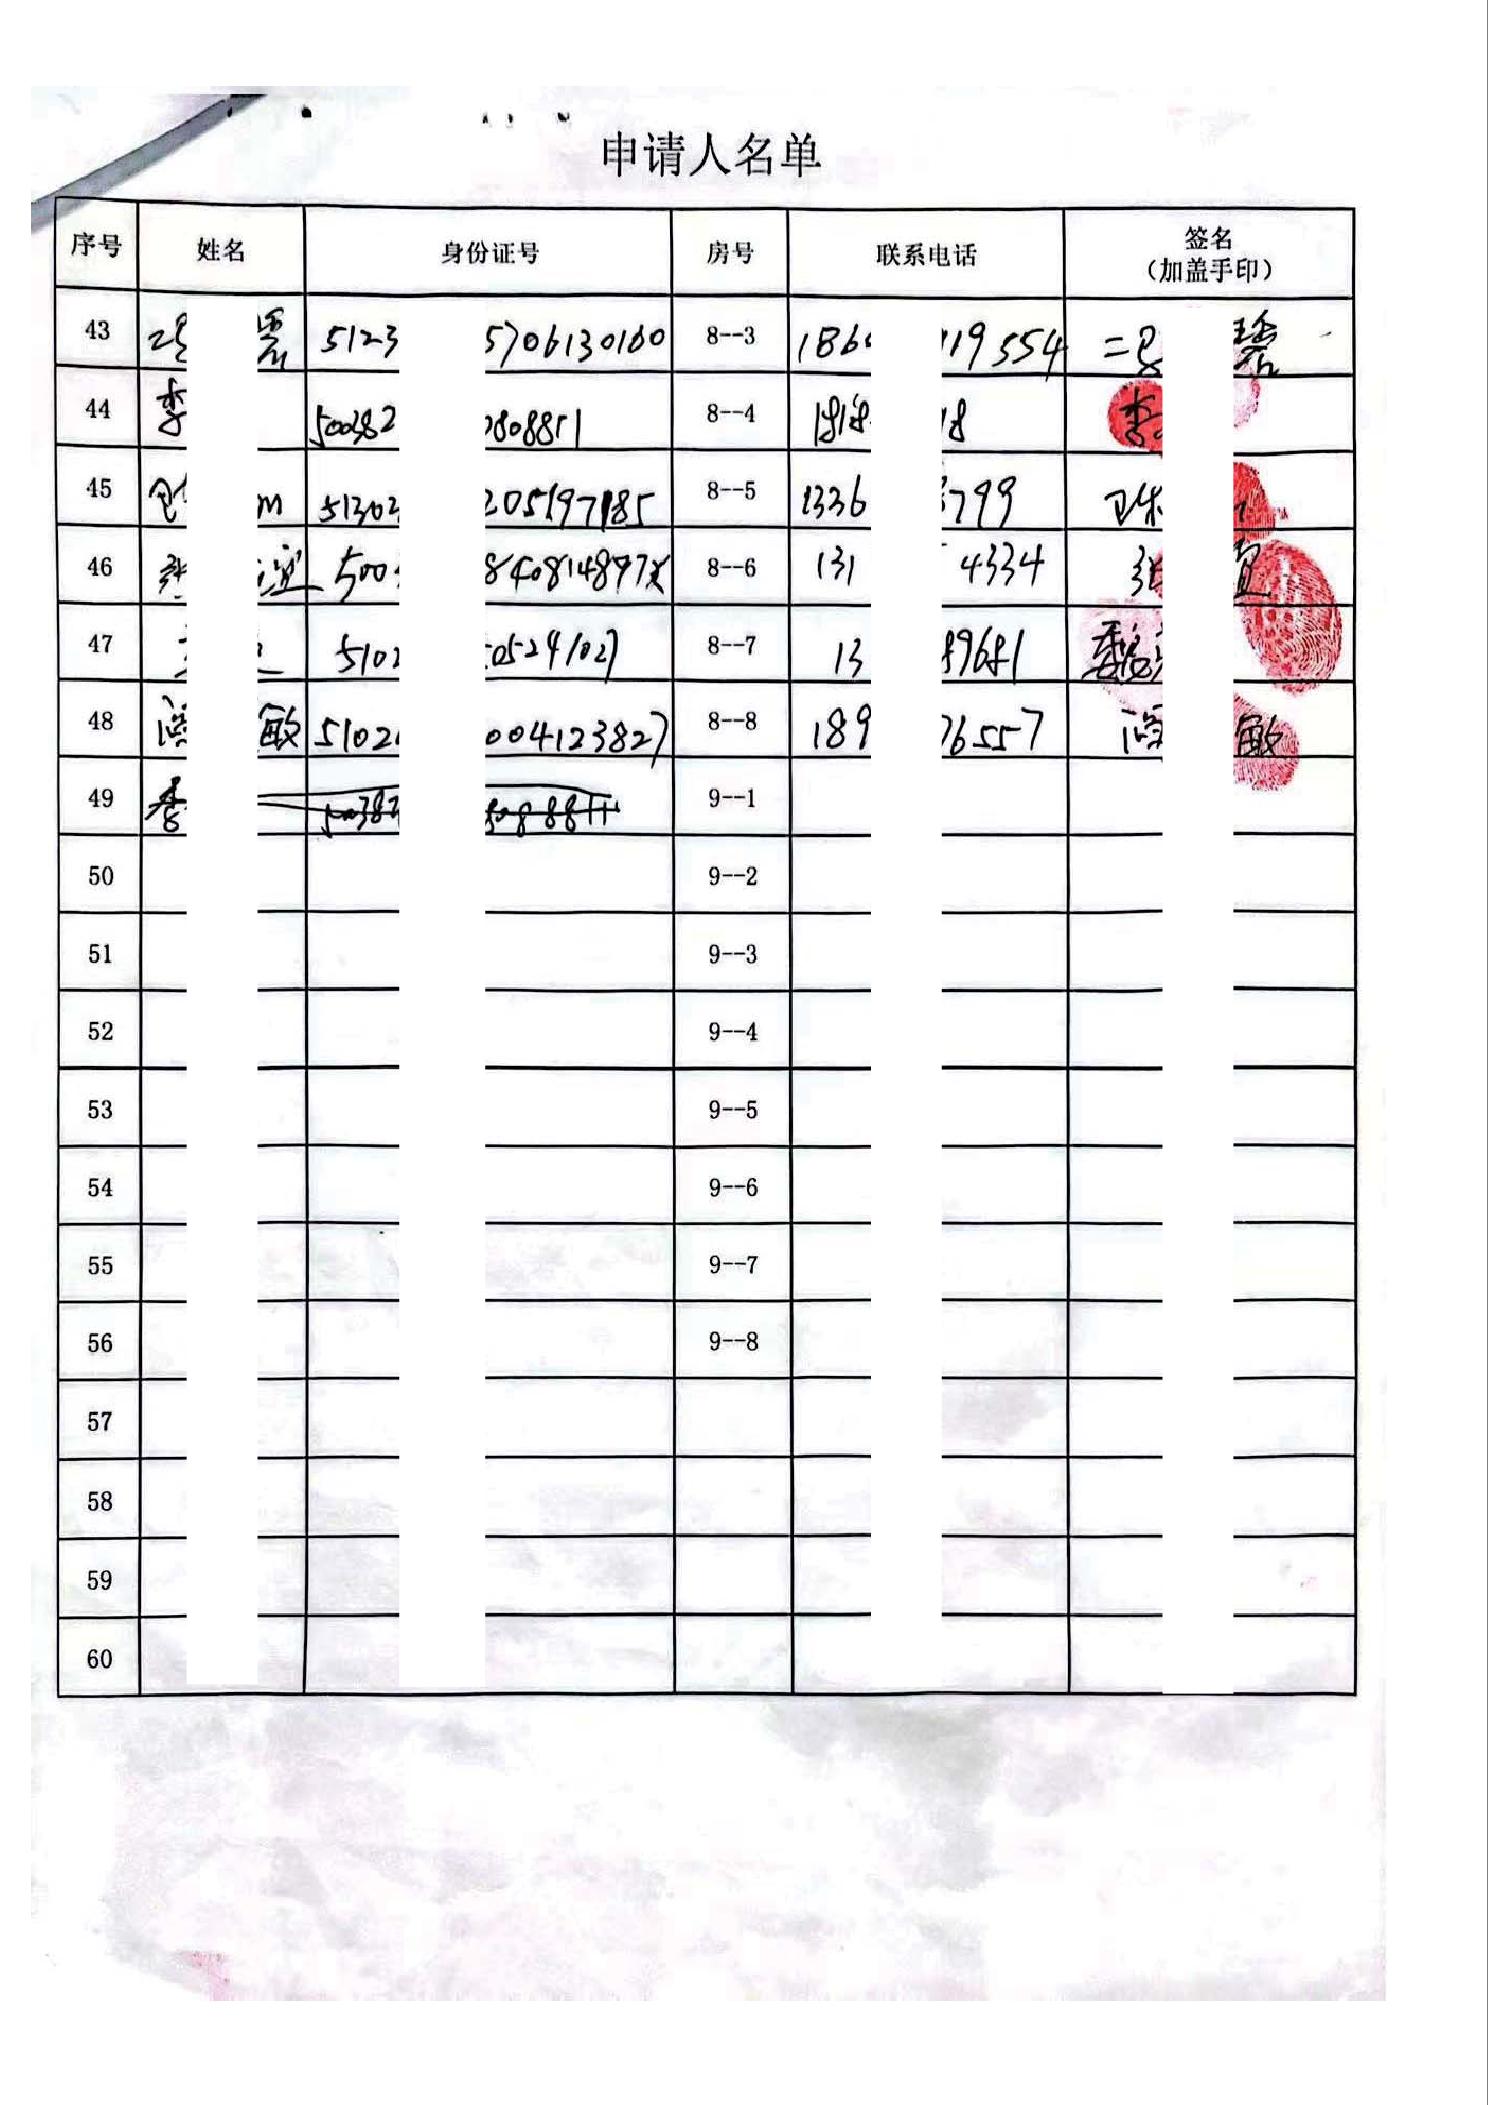 申请人名单
序号 姓名 身份证号 房号 联系电话 签名
（加盖手印）
43 5123 5706130160 8--3 186 119554 碧
44 李 500382 0808851 8--4 18 李
45 51302 205197185 8--5 1336 799
46 谊 500 840814897X 8--6 131 4334 张
47 5102 05241027 8--7 13 89681
48 敏 5102 004123827 8--8 189 76557 敏
49 李 50038 9--1
50 9--2
51 9--3
52 9--4
53 9--5
54 9--6
55 9--7
56 9--8
57
58
59
60